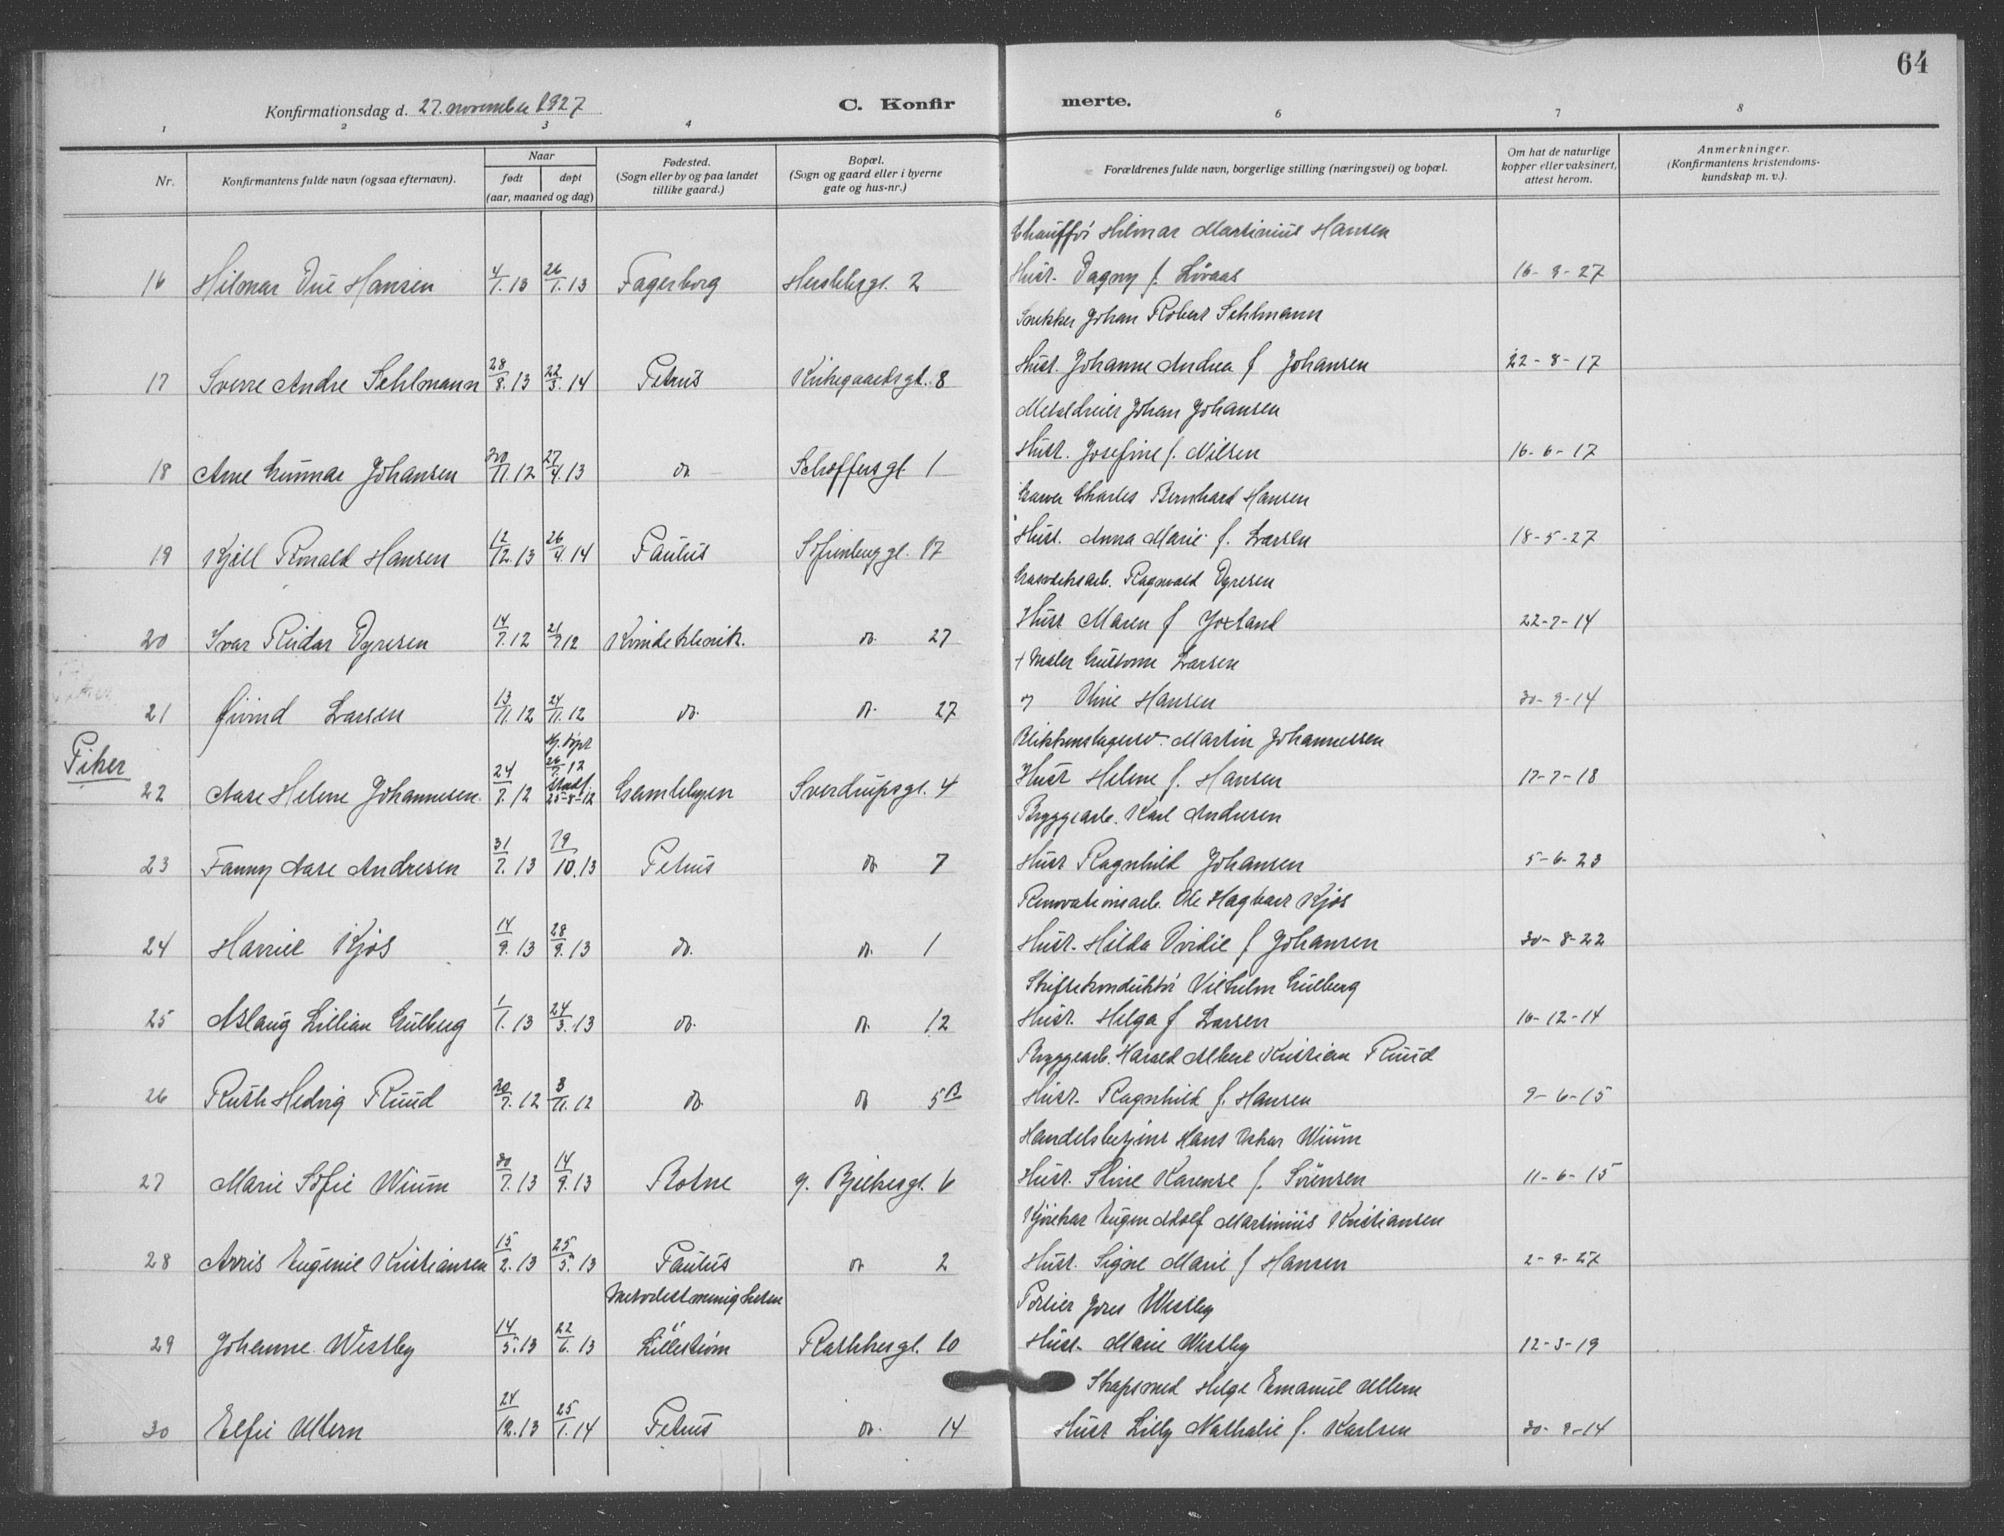 64
Konfirmationsdag d. 27. november 1927
C. Konfirmerte.
1 2 3 4 6 7 8
Nr.
Konfirmantens fulde navn (ogsaa efternavn).
Naar
født døpt
(aar, maaned og dag)
Fødested.
(Sogn eller by og paa landet
tillike gaard.)
Bopæl.
(Sogn og gaard eller i byerne
gate og hus-nr.)
Forældrenes fulde navn, borgerlige stilling (næringsvei) og bopæl.
Om hat de naturlige
kopper eller vaksinert,
attest herom.
Anmerkninger.
(Konfirmantens kristendoms-
kundskap m. v.).
Chauffør Hilmar Martinius Hansen
16 Hilmar Due Hansen 4/1.13 26/1.13 Fagerborg Herslebsgt. 2 Hust. Dagny f. Løvaas 16-9-27
Snekker Johan Robert Sehlmann
17 Sverre Andre Sehlmann 28/8.13 22/3.14 Petrus Kirkegaardsgt. 8 Hust. Johanne Andrea f Johansen 22-8-17
Metaldreier Johan Johansen
18 Arne Gunnar Johansen 30/11.12 27/4.13 do Schøffersgt 1 Hust. Josefine f. Nilsen 16-6-17
Garver Charles Bernhard Hansen
19 Kjell Ronald Hansen 12/12.13 26/4.14 Paulus Sofienberggt. 17 Hust. Anna Marie f. Larsen 18-5-27
Gasverksarb. Ragnvald Dyresen
20 Ivar Reidar Dyresen 14/7.12 21/7.12 Kvindeklinik. do. 27 Hust Maren f Joxland 22-7-14
+ Maler Guttorm Larsen
21 Øivind Larsen 13/11.12 24/11.12 do. do. 27 og Oline Hansen 30-9-14
Piker
Blikkenslagersv. Martin Johannessen
22 Aase Helene Johannesen. 24/7.12 Hj. døpt 26/7.12 stadf 25-8-12 Gamlebyen Sverdrupsgt. 4 Hust Helene f. Hansen 17-7-18
Bryggearb. Karl Andresen
23 Fanny Aase Andresen 31/7.13 19/10.13 Petrus do 7 Hust Ragnhild Johansen 5-6-23
Renovationsarb. Ole Hagbart Kjøs
24 Harriet Kjøs 14/9.13 28/9.13 do. do. 1 Hust. Hilda Ovidie f Johansen 30-8-22
Skiftekonduktør Vilhelm Gulberg
25 Aslaug Lillian Gulberg 1/1.13 24/3.13 do. do. 12 Hust. Helga f Larsen 16-12-14
Bryggearb. Harald Albert Kristian Ruud
26 Ruth Hedvig Ruud 20/7.12 3/11.12 do. do 5B Hust. Ragnhild f. Hansen 9-6-15
Handelsbetjent Hans Oskar Wium
27 Marie Sofie Wium 30/7.13 14/9.13 Rotne J. Bjelkesgt. 6 Hust. Stine Karense f. Sørensen 11-6-15
Kjørekar Eugen Adolf Martinius Kristiansen
28 Arris Eugenie Kristiansen 15/2.13 25/5.13 Paulus do 2 Hust. Signe Marie f Hansen 2-9-27
Metodistmenigheten
Portier Jores Westby
29 Johanne Westby 14/5.13 22/6.13 Lillestrøm Rathkesgt. 10 Hust. Marie Westby 12-3-19
Skapsmed Helge Emanuel Ultern
30 Elfie Ultern 24/12.13 25/1.14 Petrus do. 14 Hust Lilly Nathalie f. Karlsen 30-9-14